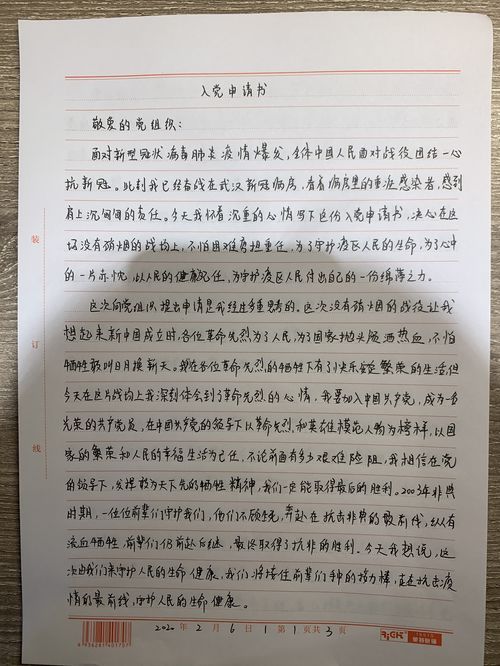 入党申请书
敬爱的党组织：
面对新型冠状病毒肺炎疫情爆发，全体中国人民面对战役团结一心
抗新冠。此刻我已经奋战在武汉新冠病房，看着病房里的重症感染者，感到
肩上沉甸甸的责任。今天我怀着沉重的心情写下这份入党申请书，决心在这
场没有硝烟的战场上，不怕困难勇担重任，为了守护疫区人民的生命，为了心中
的一片赤忱，以人民的健康为己任，为守护疫区人民付出自己的一份绵薄之力。
这次向党组织提出申请是我经过多重思考的。这次没有硝烟的战役让我
想起来新中国成立时，各位革命先烈为了人民，为了国家抛头颅洒热血，不怕
牺牲敢叫日月换新天。我在各位革命先烈的牺牲下有了快乐安定繁荣的生活，但
今天在这片战场上我深刻体会到了革命先烈的心情，我要加入中国共产党，成为一名
光荣的共产党员，在中国共产党的领导下以革命先烈和英雄模范人物为榜样，以国
家的繁荣和人民的幸福生活为己任，不论前面有多少艰难险阻，我相信在党
的领导下，发挥敢为天下先的牺牲精神，我们一定能取得最后的胜利。2003年非典
时期，一位位前辈们守护我们，他们不顾生死，奔赴在抗击非典的最前线，纵有
流血牺牲，前辈们仍前赴后继，最终取得了抗非的胜利。今天我想说，这
次由我们来守护人民的生命健康，我们将接住前辈们手中的接力棒，走在抗击疫
情的最前线，守护人民的生命健康。
装
订
线
2020年2月6日 第1页共3页
6936281401707